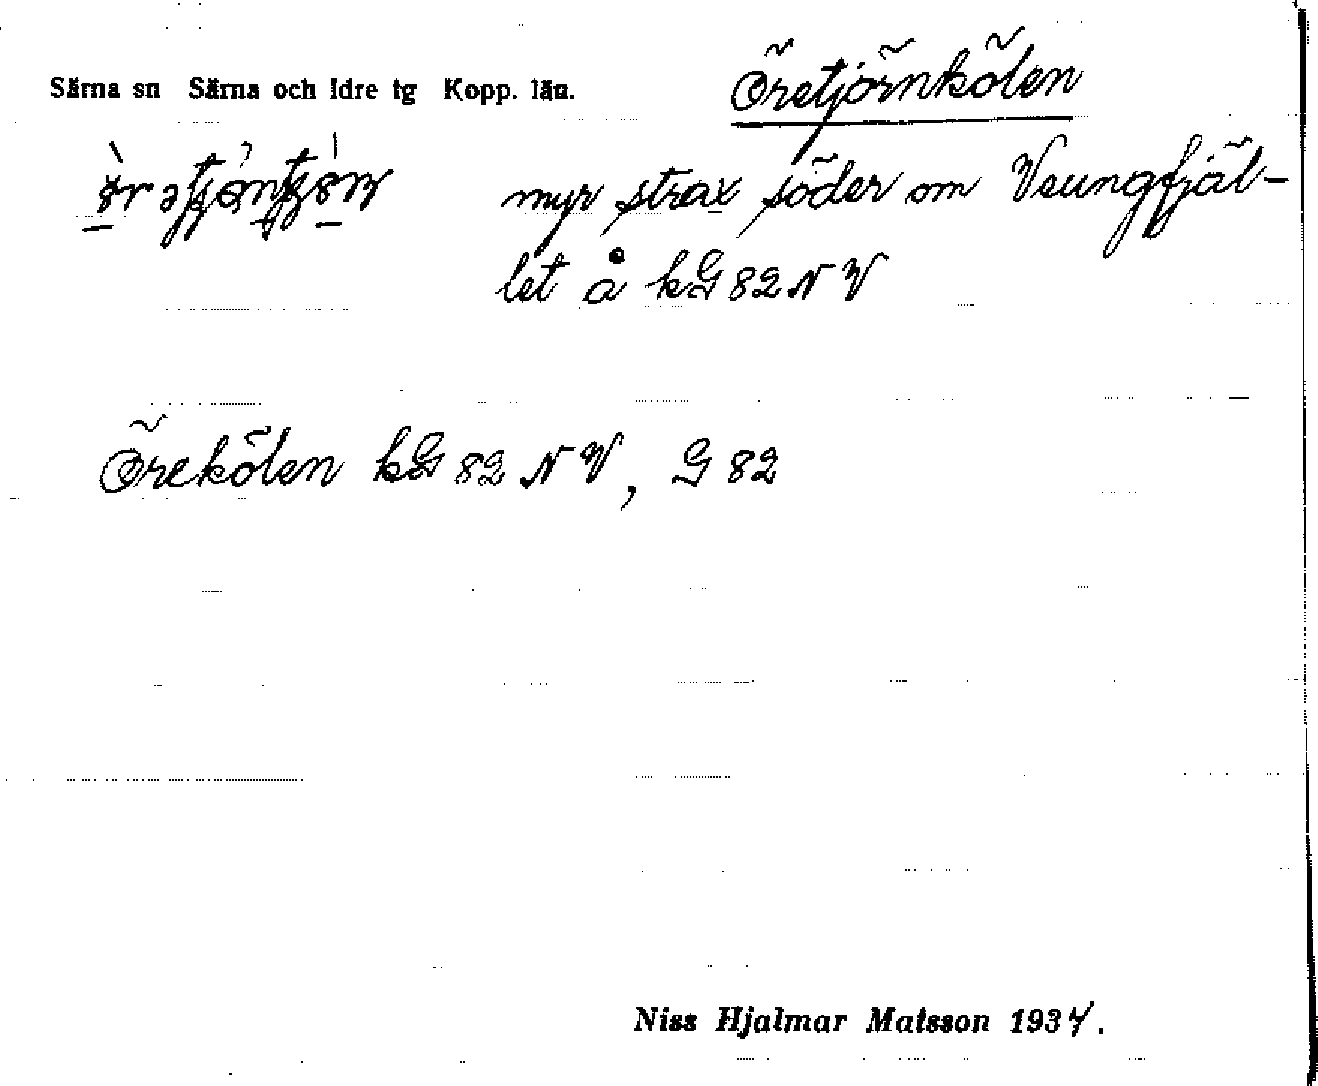 Särna sn Särna och Idre tg Kopp. län. Öretjörnkölen
myr strax söder om Veungfjäl-
let å kG 82 NV
Örekölen kG 82 NV, G 82
Niss Hjalmar Matsson 1934.